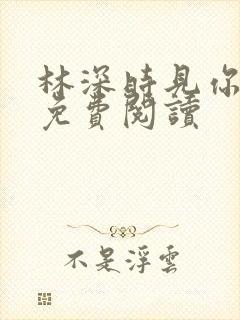 林深時見你
免費閱讀
不是浮雲